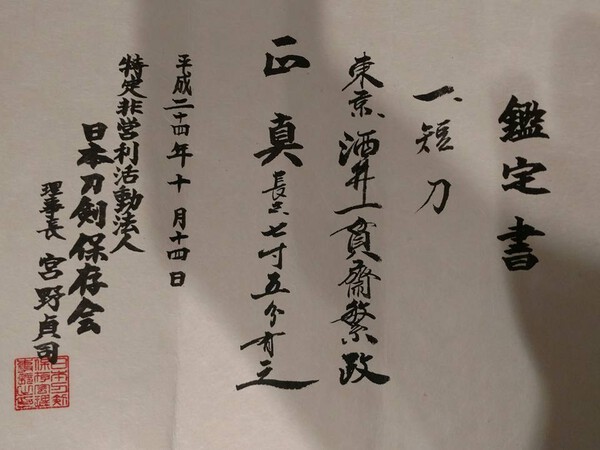 鑑定書
一、短刀
東京、酒井一貫斎繁政
正真 長さ七寸五分有之
平成二十四年十月十四日
特定非営利活動法人
日本刀剣保存会
理事長 宮野貞司